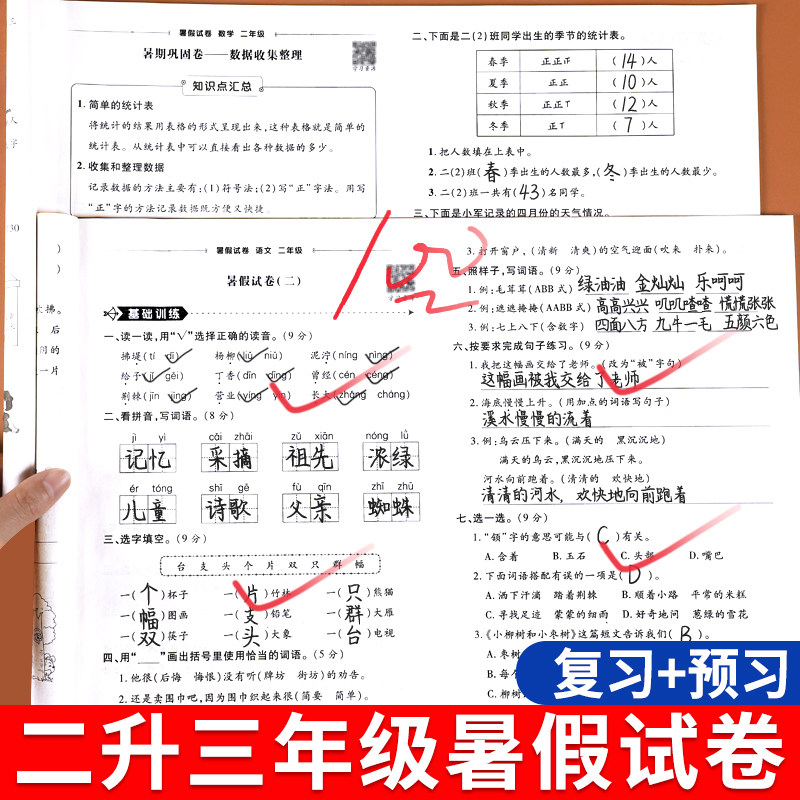 暑假试卷 数学 二年级
暑期巩固卷——数据收集整理
学习资源
知识点汇总
1. 简单的统计表
将统计的结果用表格的形式呈现出来,这种表格就是简单的
统计表。从统计表中可以直接看出各种数据的多少。
2. 收集和整理数据
记录数据的方法主要有:(1)符号法;(2)写“正”字法。用写
“正”字的方法记录数据既方便又快捷。
二、下面是二(2)班同学出生的季节的统计表。
春季 正正正 (14)人
夏季 正正 (10)人
秋季 正正T (12)人
冬季 正T (7)人
1. 把人数填在上表中。
2. 二(2)班(春)季出生的人数最多,(冬)季出生的人数最少。
3. 二(2)班一共有(43)名同学。
三、下面是小军记录的四月份的天气情况。
暑假试卷 语文 二年级
暑假试卷(二)
基础训练
一、读一读,用“√”选择正确的读音。(9分)
拂堤(tí dī) 杨柳(liǔ niǔ) 泥泞(níng nìng)
给予(jǐ gěi) 丁香(dīn dīng) 曾经(cén céng)
荆棘(jīn jīng) 营业(yíng yín) 长大(zhǎng cháng)
二、看拼音,写词语。(8分)
jì yì cǎi zhāi zǔ xiān nóng lǜ
记忆 采摘 祖先 浓绿
ér tóng shī gē fù qīn zhī zhū
儿童 诗歌 父亲 蜘蛛
三、选字填空。(9分)
台 支 头 个 片 双 只 群 幅
一(个)杯子 一(片)竹林 一(只)熊猫
一(幅)图画 一(支)铅笔 一(群)大雁
一(双)筷子 一(头)大象 一(台)电视
四、用“___”画出括号里使用恰当的词语。(5分)
1. 他很(后悔 悔恨)没有听(牌坊 街坊)的劝告。
2. 还是卖围巾吧,因为围巾织起来很(简要 简单)。
3. 打开窗户,(清新 清爽)的空气迎面(吹来 扑来)。
五、照样子,写词语。(9分)
1. 例:毛茸茸(ABB式) 绿油油 金灿灿 乐呵呵
2. 例:遮遮掩掩(AABB式) 高高兴兴 叽叽喳喳 慌慌张张
3. 例:七上八下(含数字) 四面八方 九牛一毛 五颜六色
六、按要求完成句子练习。(9分)
1. 我把这幅画交给了老师。(改为“被”字句)
这幅画被我交给了老师
2. 海底慢慢上升。(用加点的词语写句子)
溪水慢慢的流着
3. 例:乌云压下来。(满天的 黑沉沉地)
满天的乌云,黑沉沉地压下来。
河水向前跑着。(清清的 欢快地)
清清的河水,欢快地向前跑着
七、选一选。(9分)
1. “领”字的意思可能与(C)有关。
A. 含着 B. 玉石 C. 头部 D. 嘴巴
2. 下面词语搭配有误的一项是(D)。
A. 洒下汗滴 踏着荆棘 B. 顺着小路 平常的米糕
C. 寻找足迹 蒙蒙的细雨 D. 好奇地问 葱绿的雪花
3. 《小柳树和小枣树》这篇短文告诉我们(B)。
A. 枣树
B. 每个
C. 柳树
复习+预习
二升三年级暑假试卷